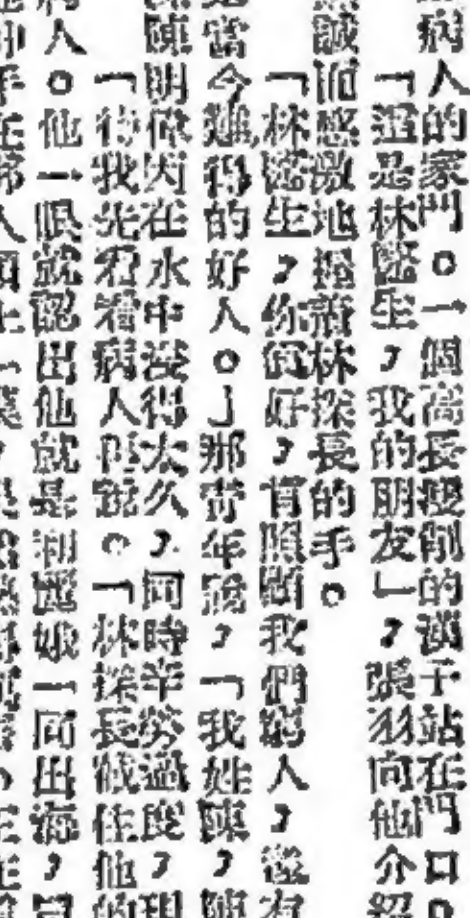 病人的家門。一個高長瘦削的漢子站在門口。
「這是林醫生,我的朋友」,張羽向他介紹
誠而感激地握著林探長的手。
「林醫生,你真好,肯照顧我們窮人,
當今難得的好人。」那青年說,「我姓陳,陳
陳明偉因在水中浸得太久,同時辛勞過度,現
「待我先看看病人再說。「林探長截住他的
人。他一眼就認出他就是和麗娥一同出海,